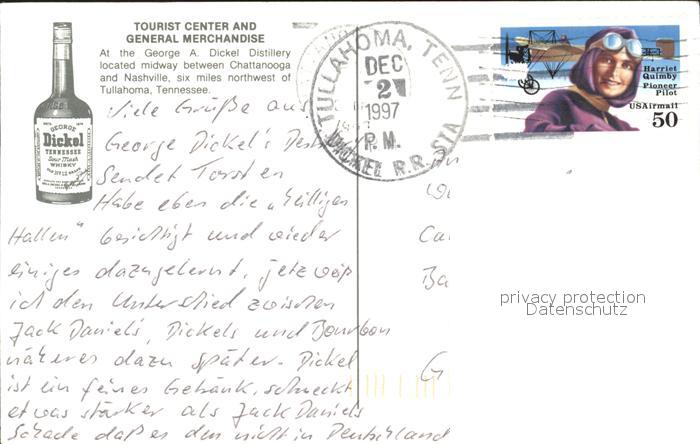 TOURIST CENTER AND
GENERAL MERCHANDISE
At the George A. Dickel Distillery
located midway between Chattanooga
and Nashville, six miles northwest of
Tullahoma, Tennessee.
GEORGE
Dickel
TENNESSEE
Sour Mash
WHISKY
TULLAHOMA, TENN
DEC
2
1997
P.M.
DICKEL R.R. STA
Harriet
Quimby
Pioneer
Pilot
USAirmail
50
Viele Grüße aus
George Dickel's
Sendet Torsten
Habe eben die „heiligen
Hallen" besichtigt und wieder
einiges dazugelernt, jetz weiß
ich den Unterschied zwischen
Jack Daniels, Dickels und Bourbon
näheres dazu später. Dickel
ist ein feines Getränk, schmeckt
etwas stärker als Jack Daniels
Schade daß es den nicht in Deutschland
Ca
Ba
G
privacy protection
Datenschutz